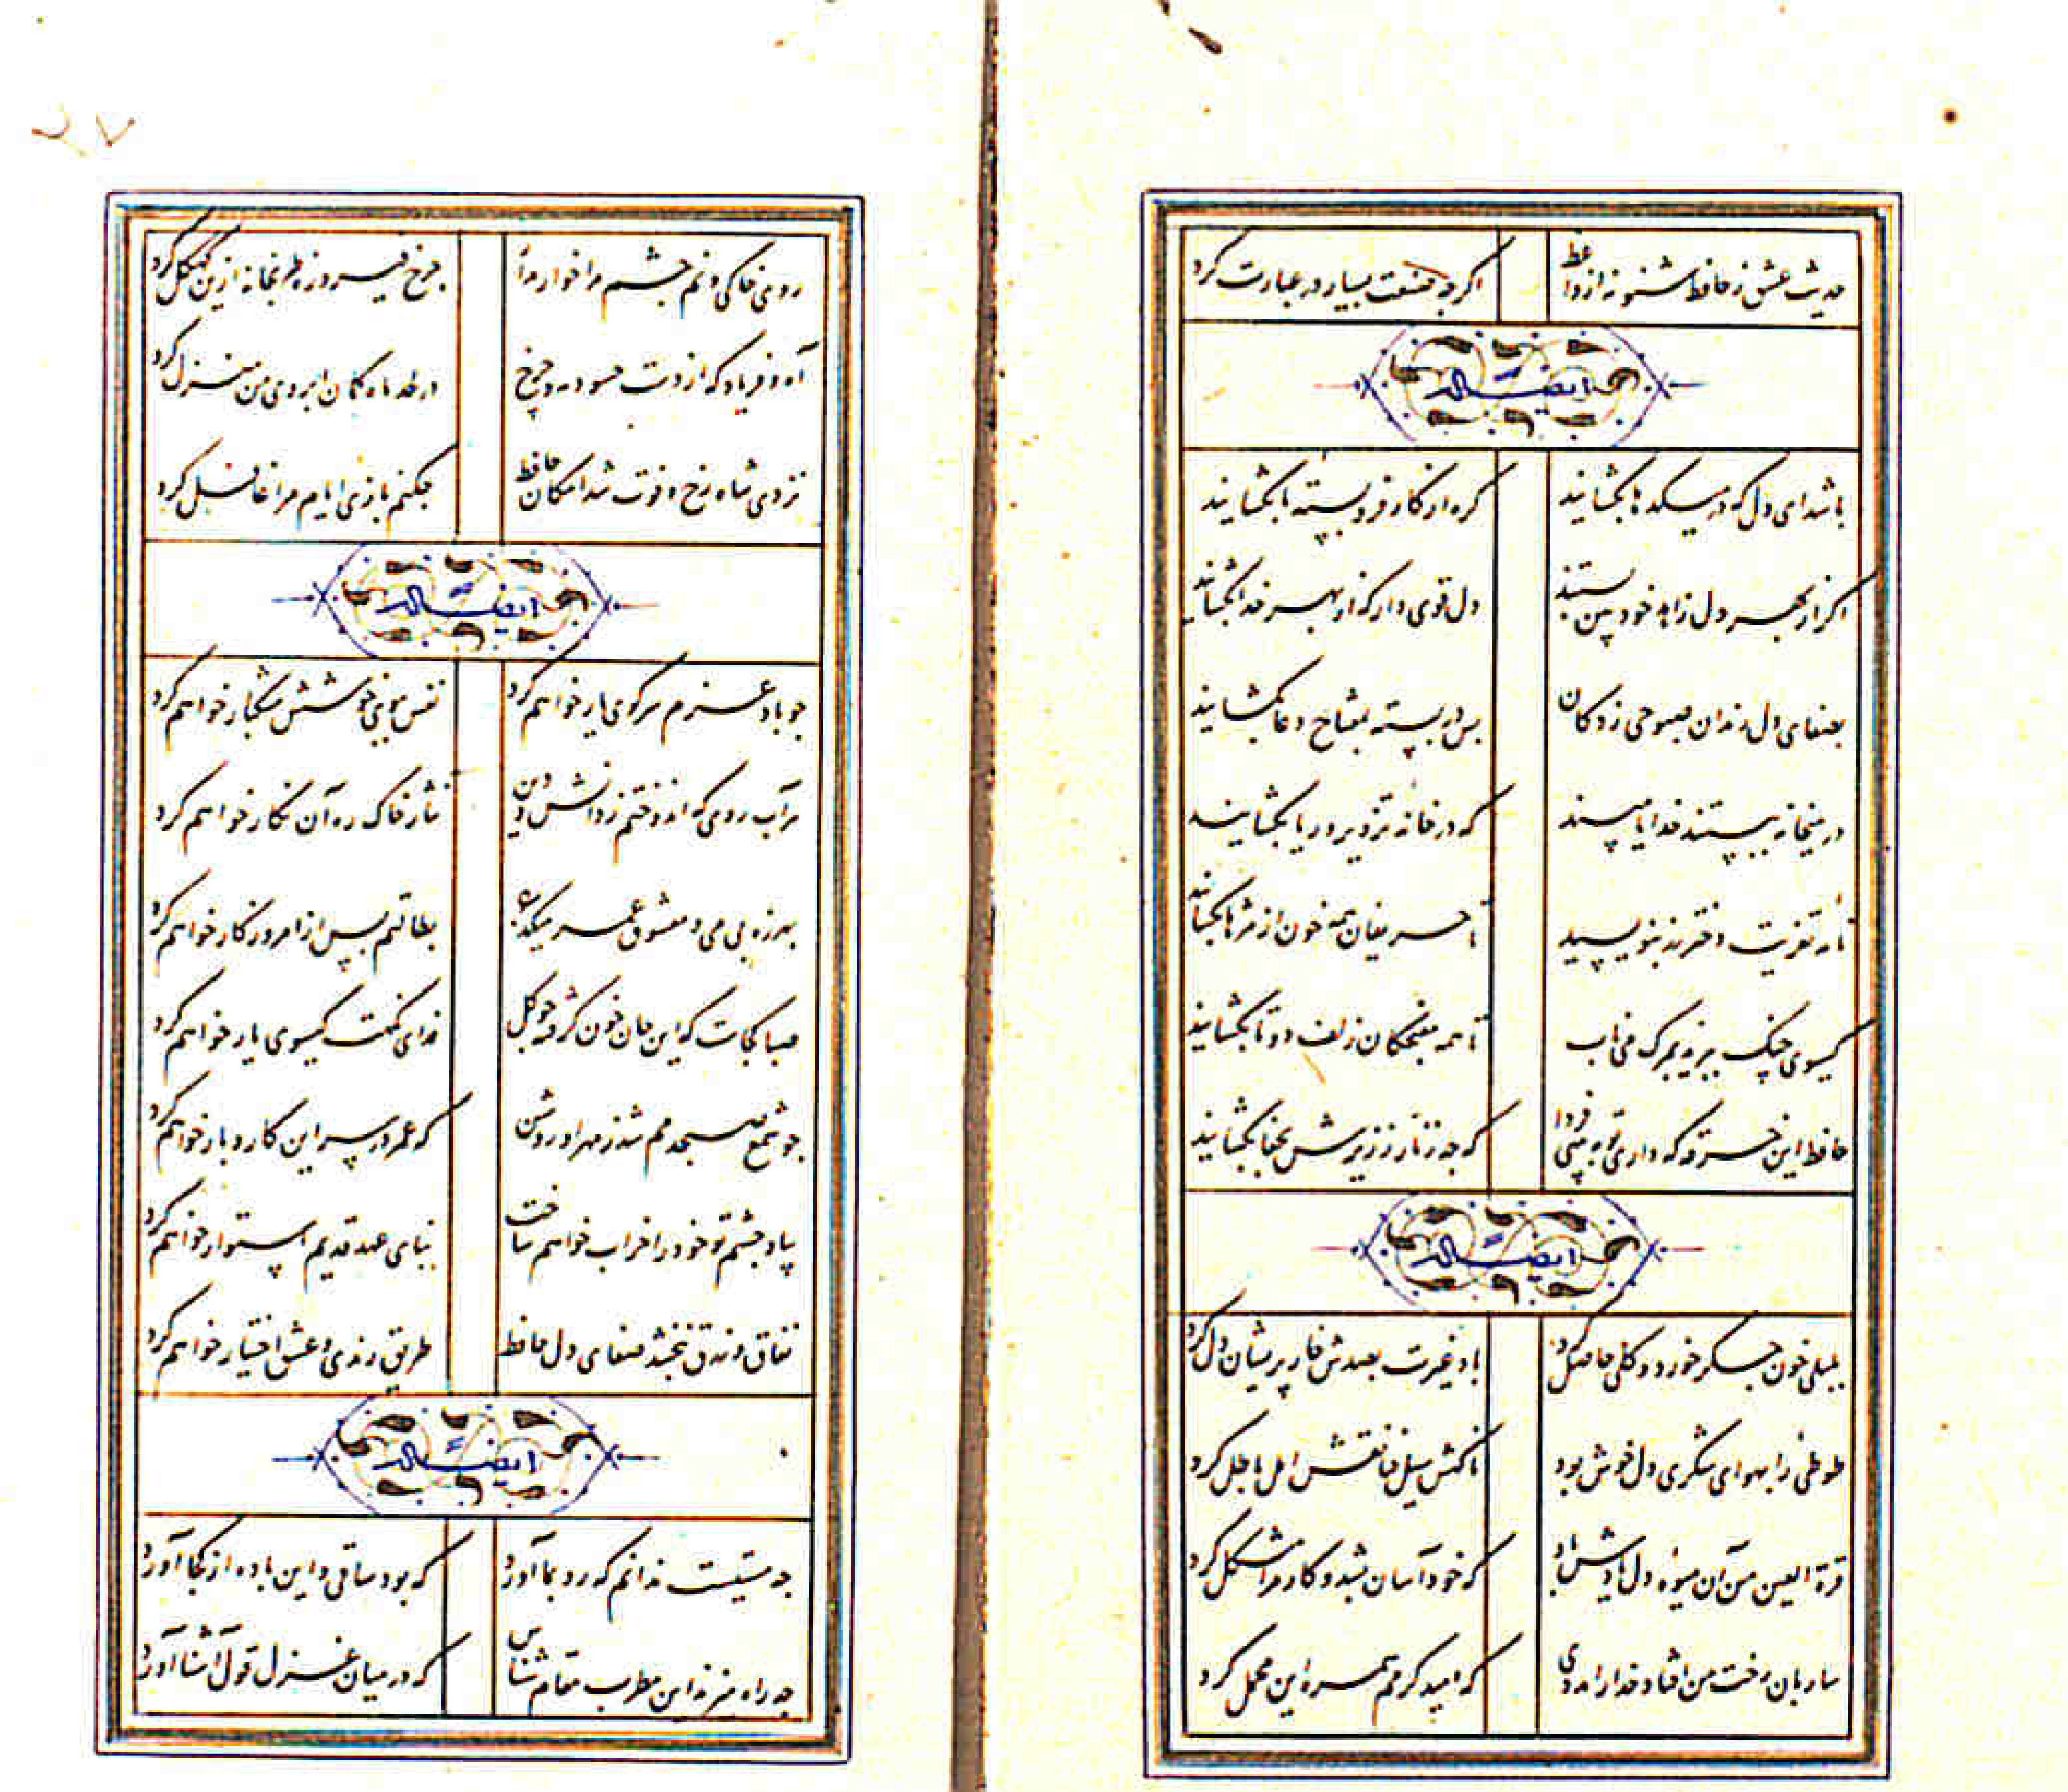 حدیث عشق ز حافظ شنو نه از واعظ
اکرچه صنعت بسیار در عبارت کرد
ایضا له
باشد ای دل که در میکده‌ها بکشایند
کره از کار فروبسته ما بکشایند
اکر از بهر دل زاهد خود بین بستند
دل قوی دار که از بهر خدا بکشایند
بصفای دل رندان صبوحی زدکان
بس در بسته بمفتاح دعا بکشایند
در میخانه ببستند خدایا مپسند
که در خانه تزویر و ریا بکشایند
نامه تعزیت دختر رز بنویسید
تا حریفان همه خون از مژها بکشایند
کیسوی چنک ببرید بمرک می ناب
تا همه مغبچکان زلف دوتا بکشایند
حافظ این خرقه که داری تو ببینی فردا
که چه زنار ز زیرش بجفا بکشایند
ایضا له
بلبلی خون جکر خورد و کلی حاصل کرد
باد غیرت بصدش خار پریشان دل کرد
طوطئ را بهوای شکری دل خوش بود
ناکهش سیل فنا نقش امل باطل کرد
قرة العین من آن میوه دل یادش باد
که خود آسان بشد و کار مرا مشکل کرد
ساربان رخت من افتاد خدا را مددی
که امید کرمم همره این محمل کرد
۲۷
روی خاکی و نم چشم مرا خوار مدار
چرخ فیروزه طربخانه ازین کهکل کرد
آه و فریاد که از دست حسود مه و چرخ
در لحد ماه کمان ابروی من منزل کرد
نزدی شاه رخ و فوت شد امکان حافظ
چکنم بازی ایام مرا غافل کرد
ایضا له
چو باد عزم سر کوی یار خواهم کرد
نفس ببوی خوشش مشکبار خواهم کرد
هر آب روی که اندوختم ز دانش و دین
نثار خاک ره آن نکار خواهم کرد
بهرزه بی می و معشوق عمر میکذرد
بطالتم بس از امروز کار خواهم کرد
صبا کجاست که این جان خون کرفته چو کل
فدای نکهت کیسوی یار خواهم کرد
چو شمع صبحدمم شد ز مهر او روشن
که عمر در سر این کار و بار خواهم کرد
بیاد چشم تو خود را خراب خواهم ساخت
بنای عهد قدیم استوار خواهم کرد
نفاق و زرق نبخشد صفای دل حافظ
طریق رندی و عشق اختیار خواهم کرد
ایضا له
چه مستیست ندانم که رو بما آورد
که بود ساقی و این باده از کجا آورد
چه راه میزند این مطرب مقام شناس
که در میان غزل قول آشنا آورد